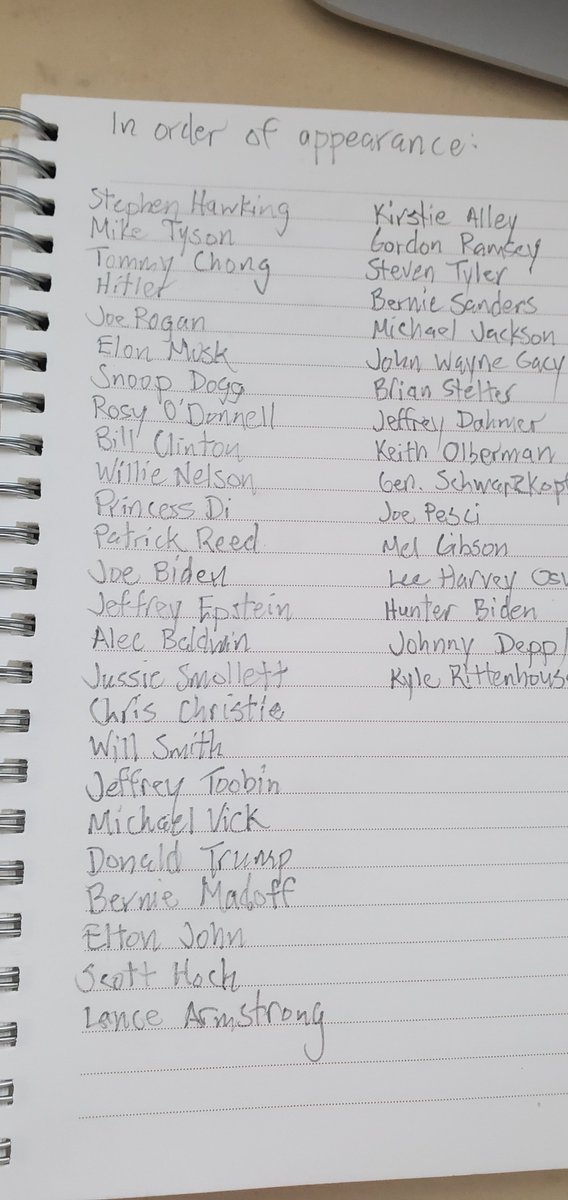 In order of appearance:
Stephen Hawking
Mike Tyson
Tommy Chong
Hitler
Joe Rogan
Elon Musk
Snoop Dogg
Rosy O'Donnell
Bill Clinton
Willie Nelson
Princess Di
Patrick Reed
Joe Biden
Jeffrey Epstein
Alec Baldwin
Jussie Smollett
Chris Christie
Will Smith
Jeffrey Toobin
Michael Vick
Donald Trump
Bernie Madoff
Elton John
Scott Hoch
Lance Armstrong
Kirstie Alley
Gordon Ramsey
Steven Tyler
Bernie Sanders
Michael Jackson
John Wayne Gacy
Brian Stelter
Jeffrey Dahmer
Keith Olberman
Gen. Schwarzkopf
Joe Pesci
Mel Gibson
Lee Harvey
Hunter Biden
Johnny Depp
Kyle